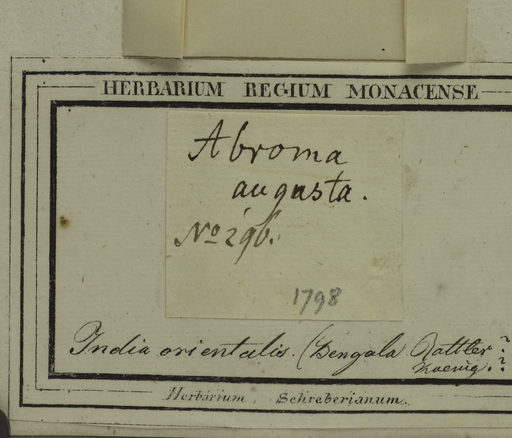 HERBARIUM REGIUM MONACENSE
Abroma
augusta.
No 296.
1798
India orientalis. (Bengala) Rottler?
Koenig.?
Herbarium Schreberianum.